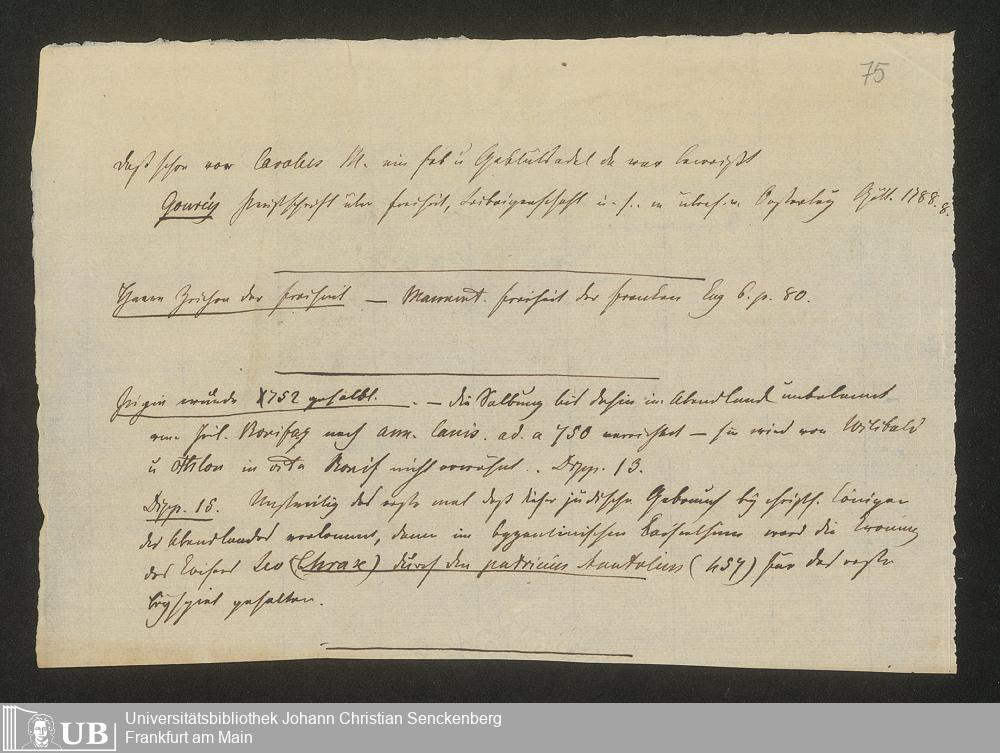 75
daß schon vor Caroles M. ein Erb u Geblütsadel da war beweißt
Gourcy Preisschrift über Freiheit, Leibeigenschaft u. s. Gött. 1788. 8.
Haare Zeichen der Freiheit — Mannert. Freiheit der Franken Cap 6. p. 80.
Pipin wurde 752 gesalbt. — die Salbung bis dahin im Abendland unbekannt
vom heil. Bonifaz nach ann. lauris. ad. a 750 verrichtet — sie wird von Wilibald
u Othlon in vita Bonif nicht erwähnt. . Dipp. 13.
Dipp. 15. Unstreitig das erste mal daß dieser jüdische Gebrauch bey christl. Königen
des Abendlandes vorkommt, denn im byzantinischen Kaiserthum ward die Krönung
des Kaisers Leo (Thrax) durch den patricius Anatolius (457) für das erste
Beyspiel gehalten.
UB
Universitätsbibliothek Johann Christian Senckenberg
Frankfurt am Main